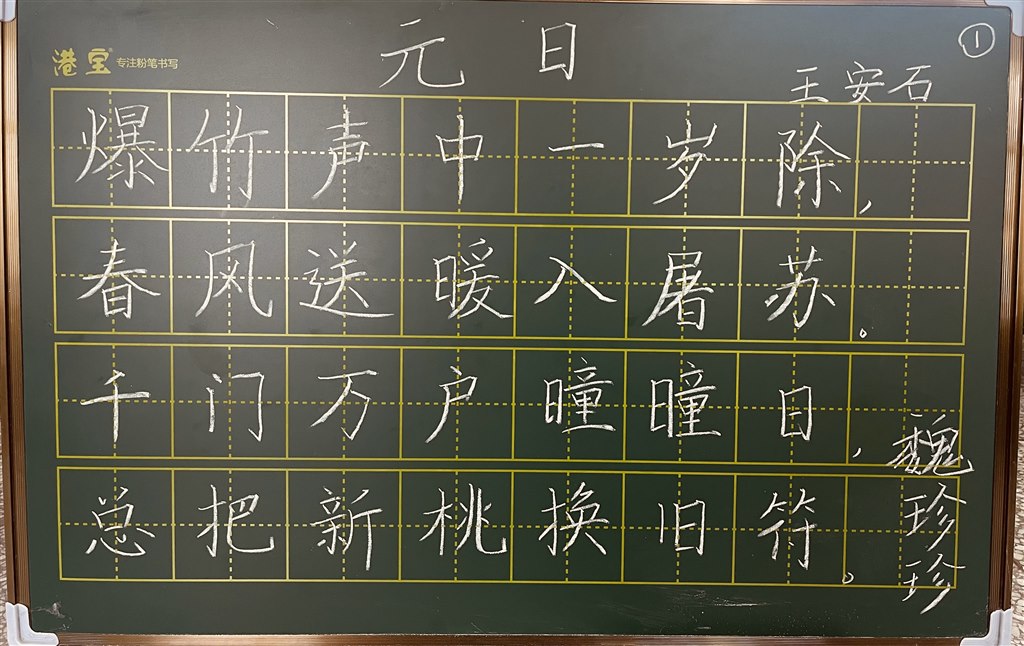 港宝® 专注粉笔书写
元日
①
王安石
爆竹声中一岁除，
春风送暖入屠苏。
千门万户曈曈日，
总把新桃换旧符。
魏珍珍